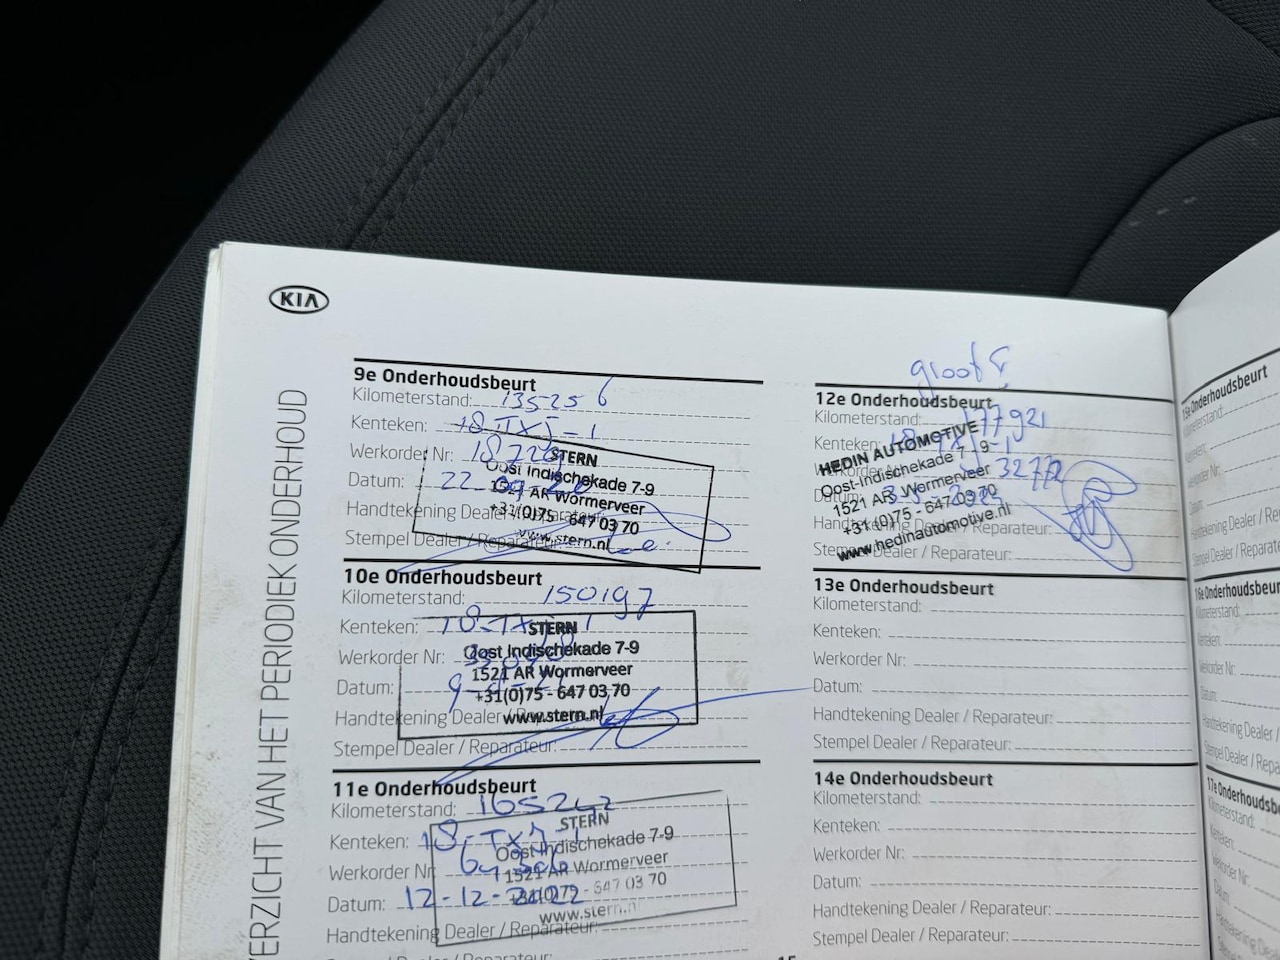 KIA
VERZICHT VAN HET PERIODIEK ONDERHOUD
9e Onderhoudsbeurt
Kilometerstand: 135256
Kenteken: 18-TXJ-1
Werkorder Nr:
Datum: 22
Handtekening Dealer / Reparateur:
Stempel Dealer / Reparateur:
STERN
Oost Indischekade 7-9
1521 AR Wormerveer
+31(0)75 - 647 03 70
www.stern.nl
10e Onderhoudsbeurt
Kilometerstand: 150197
Kenteken: 18-TXJ-1
Werkorder Nr:
Datum: 9
Handtekening Dealer / Reparateur:
Stempel Dealer / Reparateur:
STERN
Oost Indischekade 7-9
1521 AR Wormerveer
+31(0)75 - 647 03 70
www.stern.nl
11e Onderhoudsbeurt
Kilometerstand:
Kenteken: 18-TXJ-1
Werkorder Nr:
Datum: 12-12-2022
Handtekening Dealer / Reparateur:
Stempel Dealer / Reparateur:
STERN
Oost Indischekade 7-9
1521 AR Wormerveer
+31(0)75 - 647 03 70
www.stern.nl
groot
12e Onderhoudsbeurt
Kilometerstand: 177921
Kenteken:
Werkorder Nr:
Datum:
Handtekening Dealer / Reparateur:
Stempel Dealer / Reparateur:
HEDIN AUTOMOTIVE
Oost-Indischekade 7 - 9
1521 AR Wormerveer
+31 (0)75 - 647 03 70
www.hedinautomotive.nl
13e Onderhoudsbeurt
Kilometerstand:
Kenteken:
Werkorder Nr:
Datum:
Handtekening Dealer / Reparateur:
Stempel Dealer / Reparateur:
14e Onderhoudsbeurt
Kilometerstand:
Kenteken:
Werkorder Nr:
Datum:
Handtekening Dealer / Reparateur:
Stempel Dealer / Reparateur:
15
15e Onderhoudsbeurt
Kilometerstand:
Kenteken:
Werkorder Nr:
Datum:
Handtekening Dealer /
Stempel Dealer / Reparate
16e Onderhoudsbeur
Kilometerstand:
Kenteken:
Werkorder Nr:
Datum:
Handtekening Dealer /
Stempel Dealer / Repa
17e Onderhoudsb
Kilometerstand:
Kenteken:
Werkorder Nr:
Datum:
Handtekening Deale
Stempel Dealer